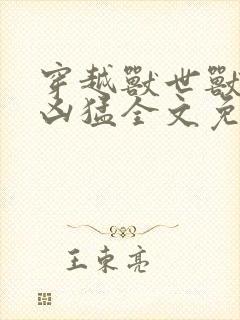 穿越獸世獸
凶猛全文免
王東亮